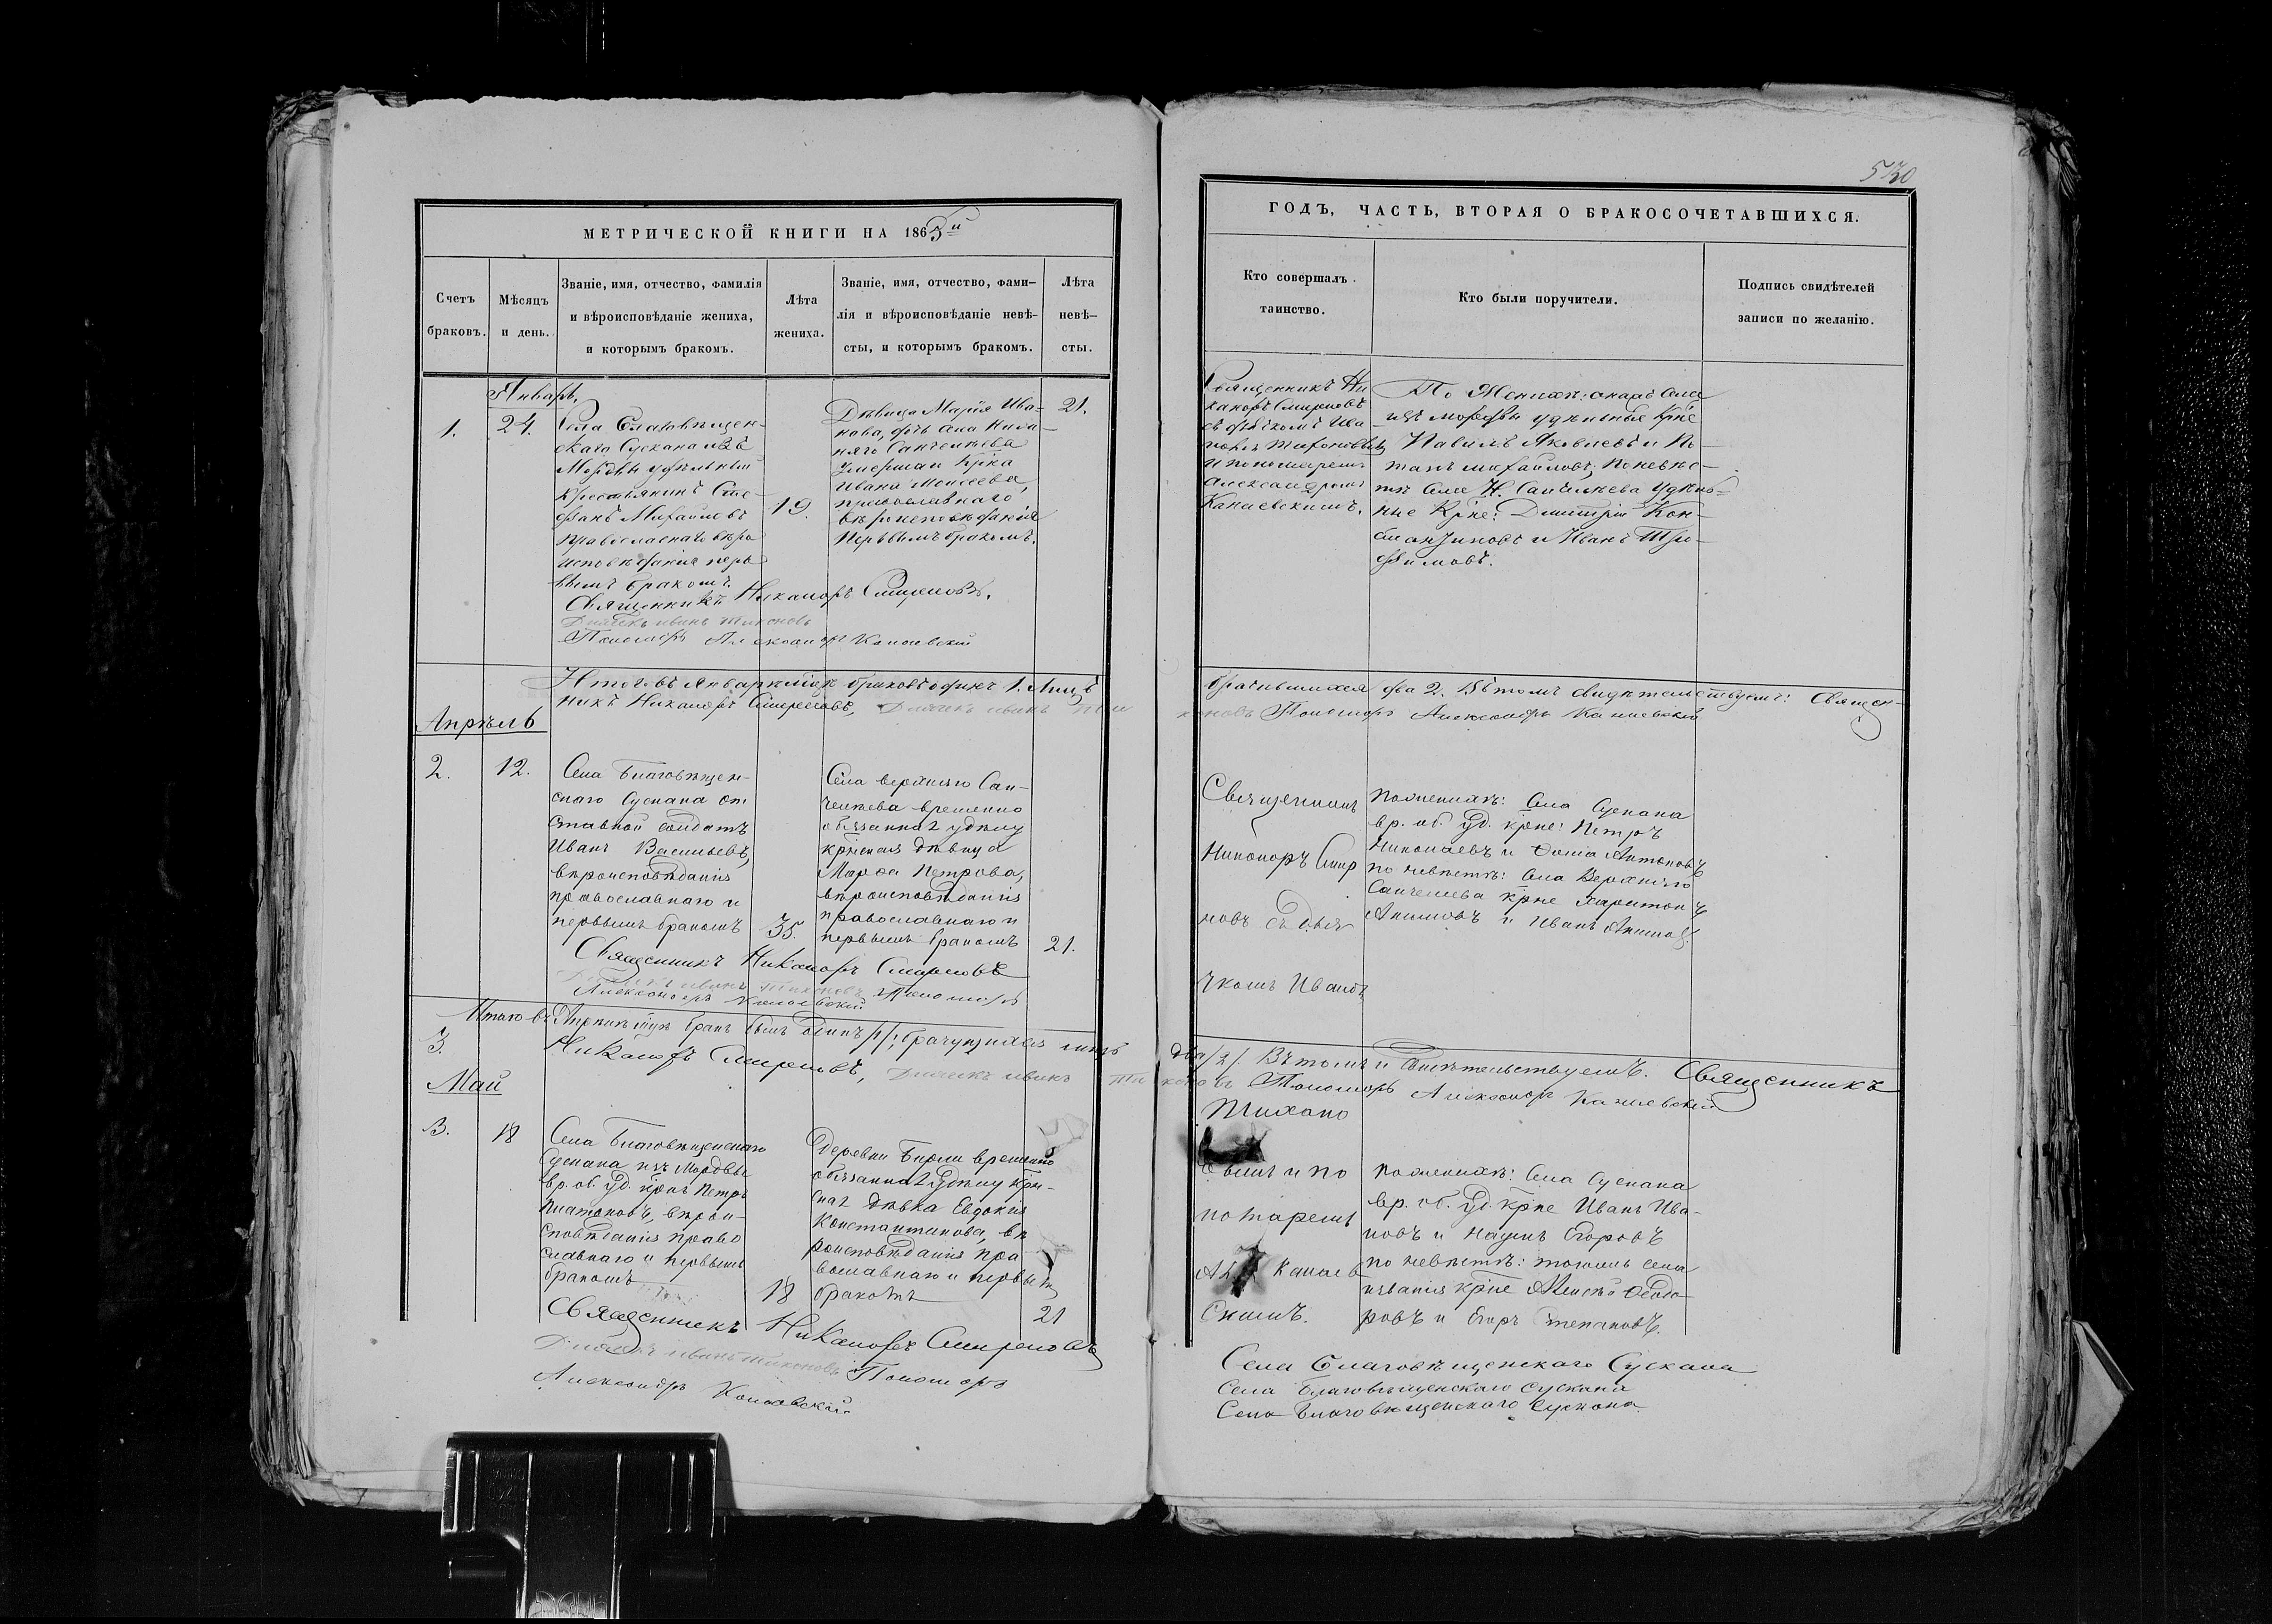 530
МЕТРИЧЕСКОЙ КНИГИ НА 1865й
ГОДЪ, ЧАСТЬ, ВТОРАЯ О БРАКОСОЧЕТАВШИХСЯ.
Счетъ
браковъ.
Мѣсяцъ
и день.
Званіе, имя, отчество, фамилія
и вѣроисповѣданіе жениха,
и которымъ бракомъ.
Лѣта
жениха.
Званіе, имя, отчество, фами-
лія и вѣроисповѣданіе невѣ-
сты, и которымъ бракомъ.
Лѣта
невѣ-
сты.
Кто совершалъ
таинство.
Кто были поручители.
Подпись свидѣтелей
записи по желанію.
Январь,
1.
24.
Села Благовѣщен-
скаго Сускана изъ
Мордвы удѣльный
крестьянинъ Сте-
фанъ Михайловъ
православнаго вѣро
исповѣданія пер-
вымъ бракомъ.
19.
Дѣвица Марія Ива-
нова, дочь села Ниж-
няго Санчелѣева
умершаго Крна
Ивана Моисеева,
православнаго
вѣроисповѣданія
первымъ бракомъ.
21.
Священникъ Ни
каноръ Смирновъ
съ дьячкомъ Ива-
номъ Тихоновымъ
и пономаремъ
Александромъ
Канаевскимъ.
По Женихѣ: онагъ села
изъ мордвы удѣльные Крне
Павилъ Яковлевъ и По-
тапъ Михайловъ; по невѣс-
тѣ села Н. Санчелѣева удѣль-
ные Крне: Дмитрій Кон-
стантиновъ и Иванъ Тро-
фимовъ.
Священникъ Никаноръ Смирновъ.
Дьячекъ Иванъ Тихоновъ
Пономарь Александръ Канаевскій
Итого въ Январѣ мцѣ браковъ одинъ 1. Лицъ
брачившихся два 2. Въ томъ свидѣтельствуемъ: Священ-
никъ Никаноръ Смирновъ, Дьячекъ Иванъ Ти
хоновъ Пономарь Александръ Канаевскій
Апрѣль
2.
12.
Села Благовѣщен-
скаго Сускана от
ставной солдатъ
Иванъ Васильевъ,
вѣроисповѣданія
православнаго и
первымъ бракомъ
35.
Села верхняго Сан-
челѣева временно
обязанная удѣлу
крнская дѣвица
Марфа Петрова,
вѣроисповѣданія
православнаго и
первымъ бракомъ
21.
Священникъ
Никаноръ Смир
новъ съ дья
чкомъ Иваномъ
По женихѣ: Села Сускана
вр. об. уд. крне: Петръ
Николаевъ и Антоновъ
по невѣстѣ: Села Верхняго
Санчелева крне Харитонъ
Акимовъ и Иванъ Акимовъ.
Священникъ Никаноръ Смирновъ
Дьячекъ Иванъ Тихоновъ Пономарь
Александръ Канаевскій
Итого въ Апрѣлѣ мцѣ бракъ былъ одинъ /1/; брачущихся лицъ
два /2/. Въ томъ и свидѣтельствуемъ. Священникъ
3.
Никаноръ Смирновъ, Дьячекъ Иванъ Ти
хоновъ Пономарь Александръ Канаевскій
Май
3.
18
Села Благовѣщенскаго
Сускана изъ Мордвы
вр. об. уд. крнъ Петръ
Платоновъ, вѣрои-
сповѣданія право
славнаго и первымъ
бракомъ
18
Деревни Бирли временно
обязанная Удѣлу крн-
ская дѣвка Евдокія
Константинова, вѣ
роисповѣданія пра
вославнаго и первымъ
бракомъ
21
Тихоно
вымъ и по
номаремъ
Ал Канаев
скимъ.
По женихѣ: Села Сускана
вр. об. уд. крне Иванъ Ива-
новъ и Наумъ Егоровъ
по невѣстѣ: тогожъ села
званія крне Алексѣй Ѳедо-
ровъ и Егоръ Степановъ.
Священникъ Никаноръ Смирновъ
Дьячекъ Иванъ Тихоновъ Пономарь
Александръ Канаевскій
Села Благовѣщенскаго Сускана
Села Благовѣщенскаго Сускана
Села Благовѣщенскаго Сускана